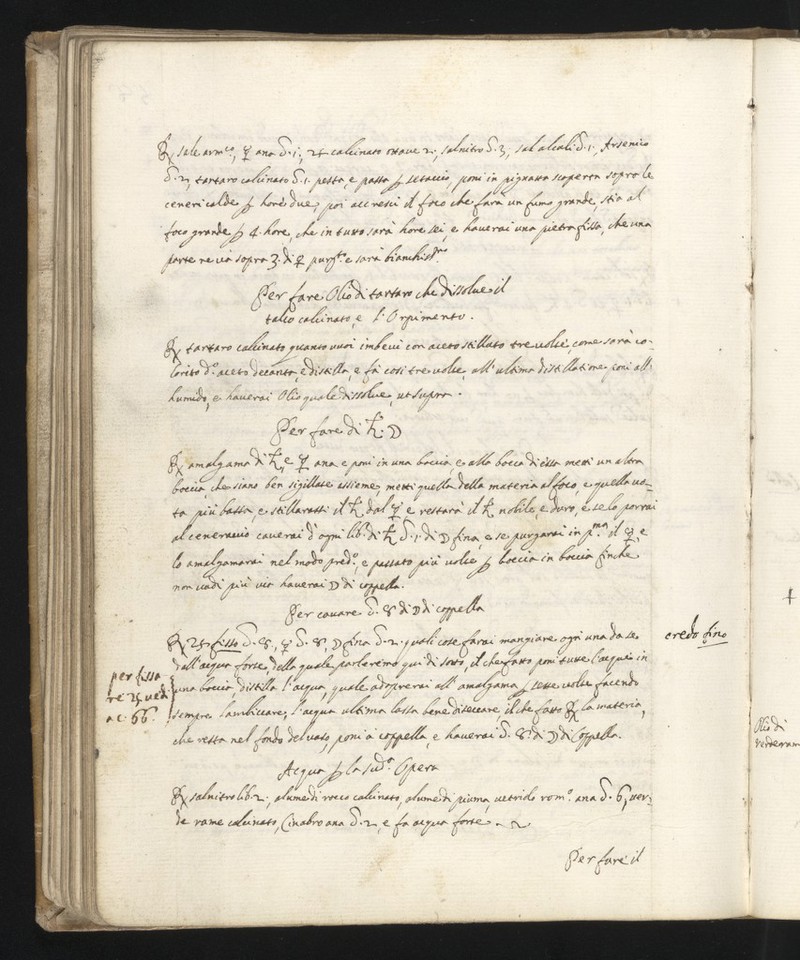 ℞ sale arm.co, ☿ ana ℥.1., ♃ calcinato ottave 2., salnitro ℥.3, sal alcali ℥.1., Arsenico
℥.2, tartaro calcinato ℥.1. pesta, e passa p setaccio, poni in pignatta scoperta sopra le
ceneri calde p hore due, poi accresci il foco che farà un fumo grande, stia al
foco grande p 4. hore, che in tutto sarà hore sei, e haverai una pietra fissa, che una
parte ne và sopra 3. di ♀ purg.to e sarà bianchiss.mo
Per fare Olio di tartaro che dissolve il
talco calcinato, e l'Orpimento.
℞ tartaro calcinato quanto vuoi imbevi con aceto stillato tre volte, come sarà co-
lorito d.o aceto decanta, e distilla, e fà così tre volte, all'ultima distillatione poni all'
humido, e haverai Olio quale dissolve, ut supra.
Per fare di ♄. ☽
℞ amalgama di ♄, e ☿ ana e poni in una boccia, e alla bocca di essa metti un altra
boccia, che siano ben sigillate assieme, metti quella della materia al foco, e quella vo-
ta più bassa, e stillarassi il ♄ dal ☿ e restarà il ♄ nobile, e duro, e se lo porrai
al ceneraccio caverai d'ogni lib. di ♄ ℥.1. di ☽ fina, e se purgarai in p.ma il ☿, e
lo amalgamarai nel modo pred.o, e passato più volte p boccia in boccia finche
non vadi più via haverai ☽ di coppella.
Per cavare ℥. 8. di ☽ di coppella
℞ ♃ fisso ℥. 8., ☿ ℥. 8, ☽ fina ℥. 2. quali cose farai mangiare ogni una da se
dall'acqua forte, della quale parleremo qui di sotto, il che fatto poni tutte l'acque in
una boccia, distilla l'acqua, quale adoprerai all'amalgama p sette volte facendo
sempre lambiccare, l'acqua ultima lassa bene disseccare, il che fatto ℞ la materia,
che resta nel fondo del vaso, poni a coppella, e haverai ℥. 8. di ☽ di Coppella.
Acqua p la sud.a Opera
℞ salnitro lib. 2., alume di rocco calcinato, alume di piuma, vetriolo rom.o ana ℥. 6, ver-
de rame calcinato, Cinabro ana ℥. 2, e fa acqua forte.
Per fare il
per fissa
re ♃ vedi
a c. 66.
credo fino
Olio di
verderam